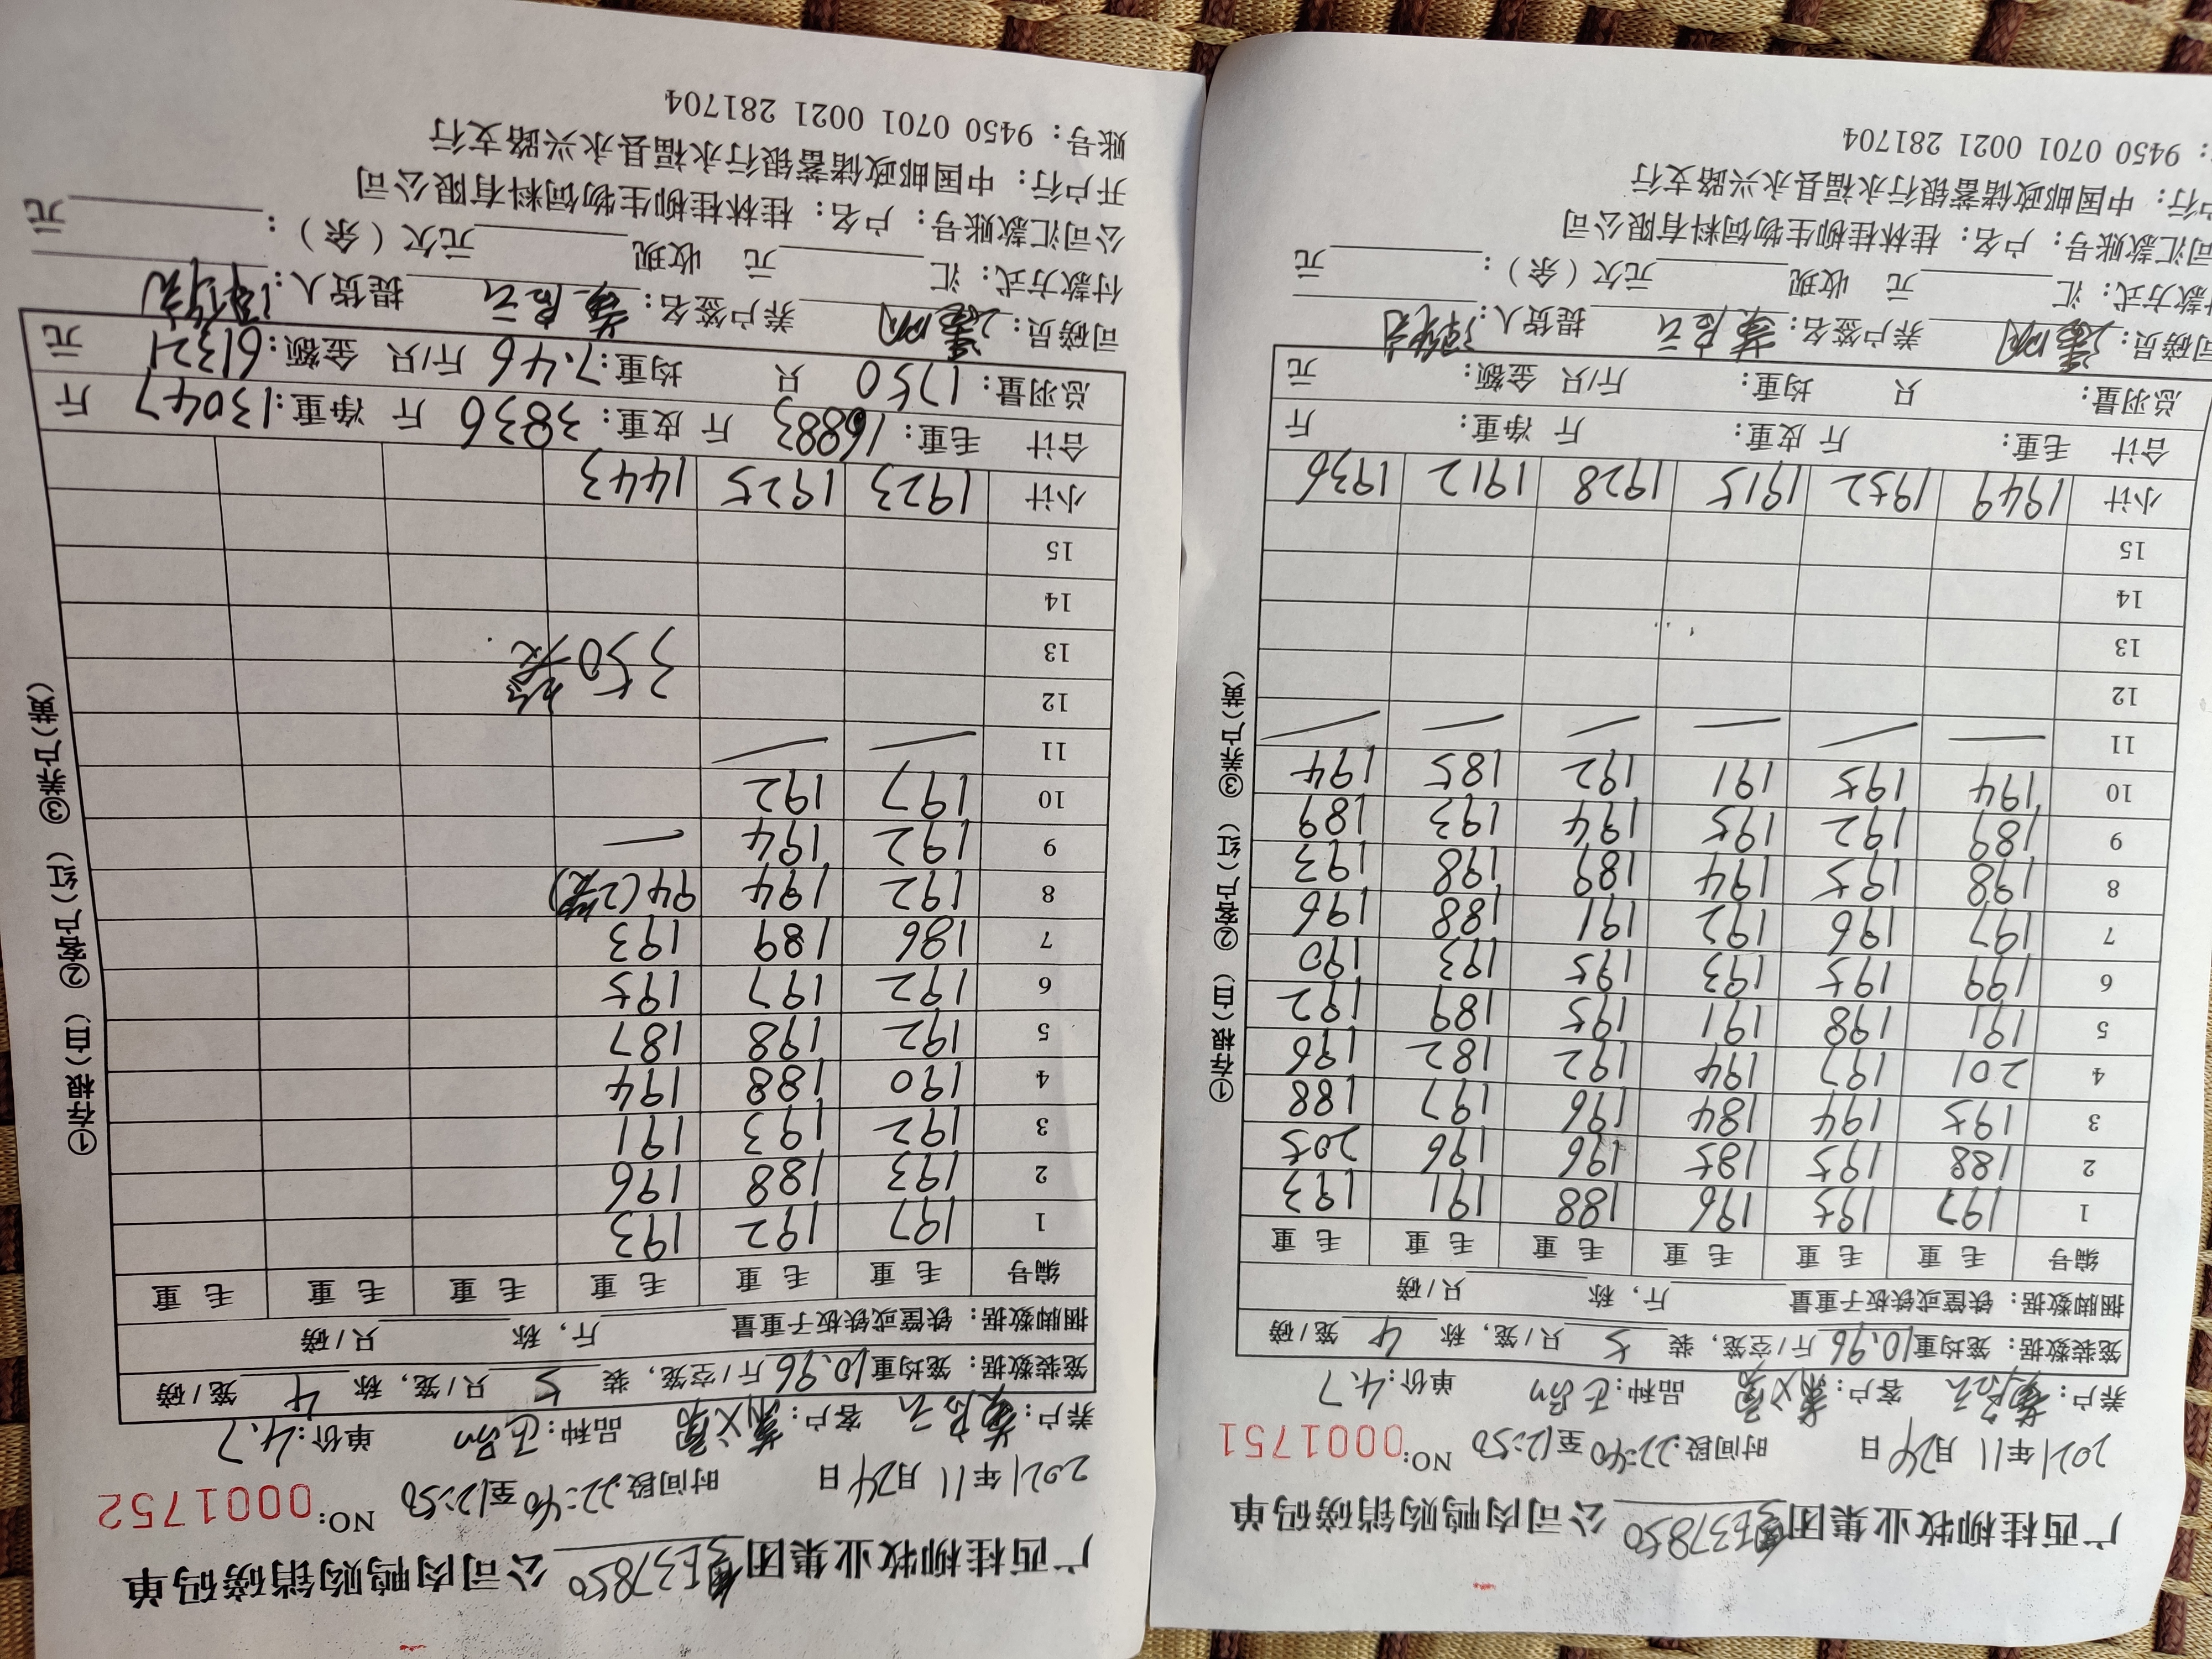 广西桂柳牧业集团 公司肉鸭购销磅码单
2021年11月24日 时间段:22:40至12:50 NO:0001751
养户: 客户: 品种: 单价:4.7
笼装数据: 笼均重10.96斤/空笼, 装 5 只/笼, 称 4 笼/磅
捆脚数据: 铁筐或铁板子重量 斤, 称 只/磅
编号 毛重 毛重 毛重 毛重 毛重 毛重
1 197 195 196 188 191 193
2 188 195 185 196 196 205
3 195 194 184 196 197 188
4 201 197 194 192 182 196
5 191 198 191 195 189 192
6 199 195 193 195 193 190
7 197 196 192 191 188 196
8 198 195 194 189 198 193
9 189 192 195 194 193 189
10 194 195 191 192 185 194
11 — — — — — —
12
13
14
15
小计 1949 1952 1915 1928 1912 1936
合计 毛重: 斤 皮重: 斤 净重: 斤
总羽量: 只 均重: 斤/只 金额: 元
司磅员: 养户签名: 提货人:
付款方式: 汇 元 收现 元欠(余): 元
司汇款账号: 户名: 桂林桂柳生物饲料有限公司
户行: 中国邮政储蓄银行永福县永兴路支行
: 9450 0701 0021 281704
①存根(白) ②客户(红) ③养户(黄)
广西桂柳牧业集团 公司肉鸭购销磅码单
2021年11月24日 时间段:22:40至12:50 NO:0001752
养户: 客户: 品种: 单价:4.7
笼装数据: 笼均重10.96斤/空笼, 装 5 只/笼, 称 4 笼/磅
捆脚数据: 铁筐或铁板子重量 斤, 称 只/磅
编号 毛重 毛重 毛重 毛重 毛重 毛重
1 197 192 193
2 193 188 196
3 192 193 191
4 190 188 194
5 192 198 187
6 192 197 195
7 186 189 193
8 192 194 94(2笼)
9 192 194 —
10 197 192
11 — —
12
13 350笼
14
15
小计 1923 1925 1443
合计 毛重:16883 斤 皮重:3836 斤 净重:13047 斤
总羽量:1750 只 均重:7.46 斤/只 金额:61321 元
司磅员: 养户签名: 提货人:
付款方式: 汇 元 收现 元欠(余): 元
公司汇款账号: 户名: 桂林桂柳生物饲料有限公司
开户行: 中国邮政储蓄银行永福县永兴路支行
账号: 9450 0701 0021 281704
①存根(白) ②客户(红) ③养户(黄)